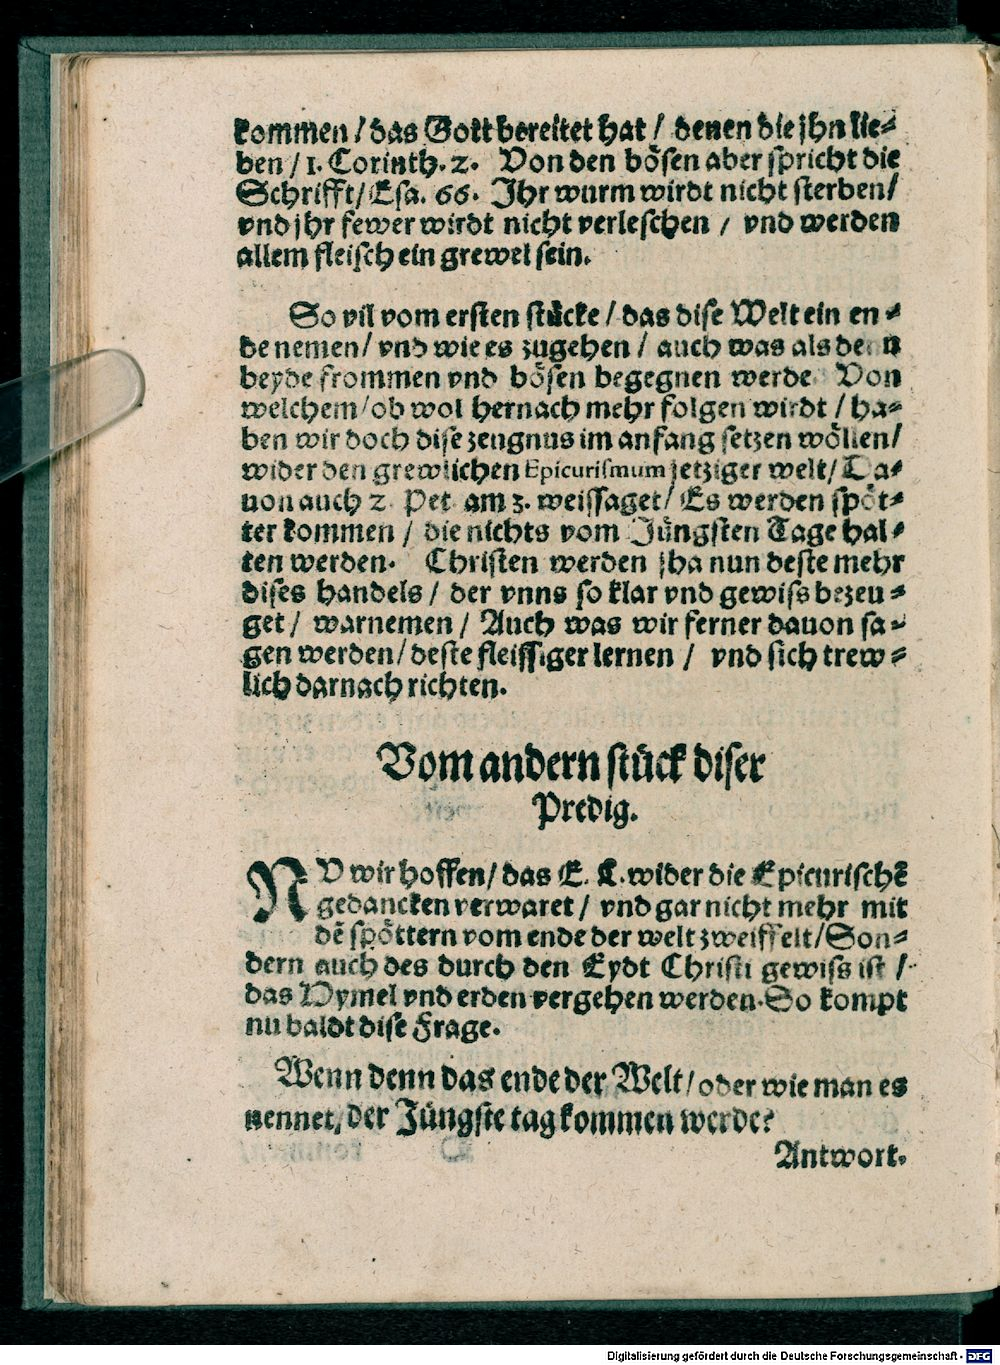 kommen / das Gott bereitet hat / denen die jhn lie⸗
ben / 1. Corinth. 2. Von den bösen aber spricht die
Schrifft / Esa. 66. Jhr wurm wirdt nicht sterben /
vnd jhr fewer wirdt nicht verleschen / vnd werden
allem fleisch ein grewel sein.
So vil vom ersten stücke / das dise Welt ein en⸗
de nemen / vnd wie es zugehen / auch was als denn
beyde frommen vnd bösen begegnen werde Von
welchem / ob wol hernach mehr folgen wirdt / ha⸗
ben wir doch dise zeugnus im anfang setzen wöllen /
wider den grewlichen Epicurismum jetziger welt / Da⸗
uon auch 2. Pet. am 3. weissaget / Es werden spöt⸗
ter kommen / die nichts vom Jüngsten Tage hal⸗
ten werden. Christen werden jha nun deste mehr
dises handels / der vnns so klar vnd gewiss bezeu⸗
get / warnemen / Auch was wir ferner dauon sa⸗
gen werden / deste fleissiger lernen / vnd sich trew⸗
lich darnach richten.
Vom andern stück diser
Predig.
NV wir hoffen / das E. L. wider die Epicurischē
gedancken verwaret / vnd gar nicht mehr mit
dē spöttern vom ende der welt zweiffelt / Son⸗
dern auch des durch den Eydt Christi gewiss ist /
das Hymel vnd erden vergehen werden. So kompt
nu baldt dise Frage.
Wenn denn das ende der Welt / oder wie man es
nennet, der Jüngste tag kommen werde?
Antwort.
Digitalisierung gefördert durch die Deutsche Forschungsgemeinschaft - DFG